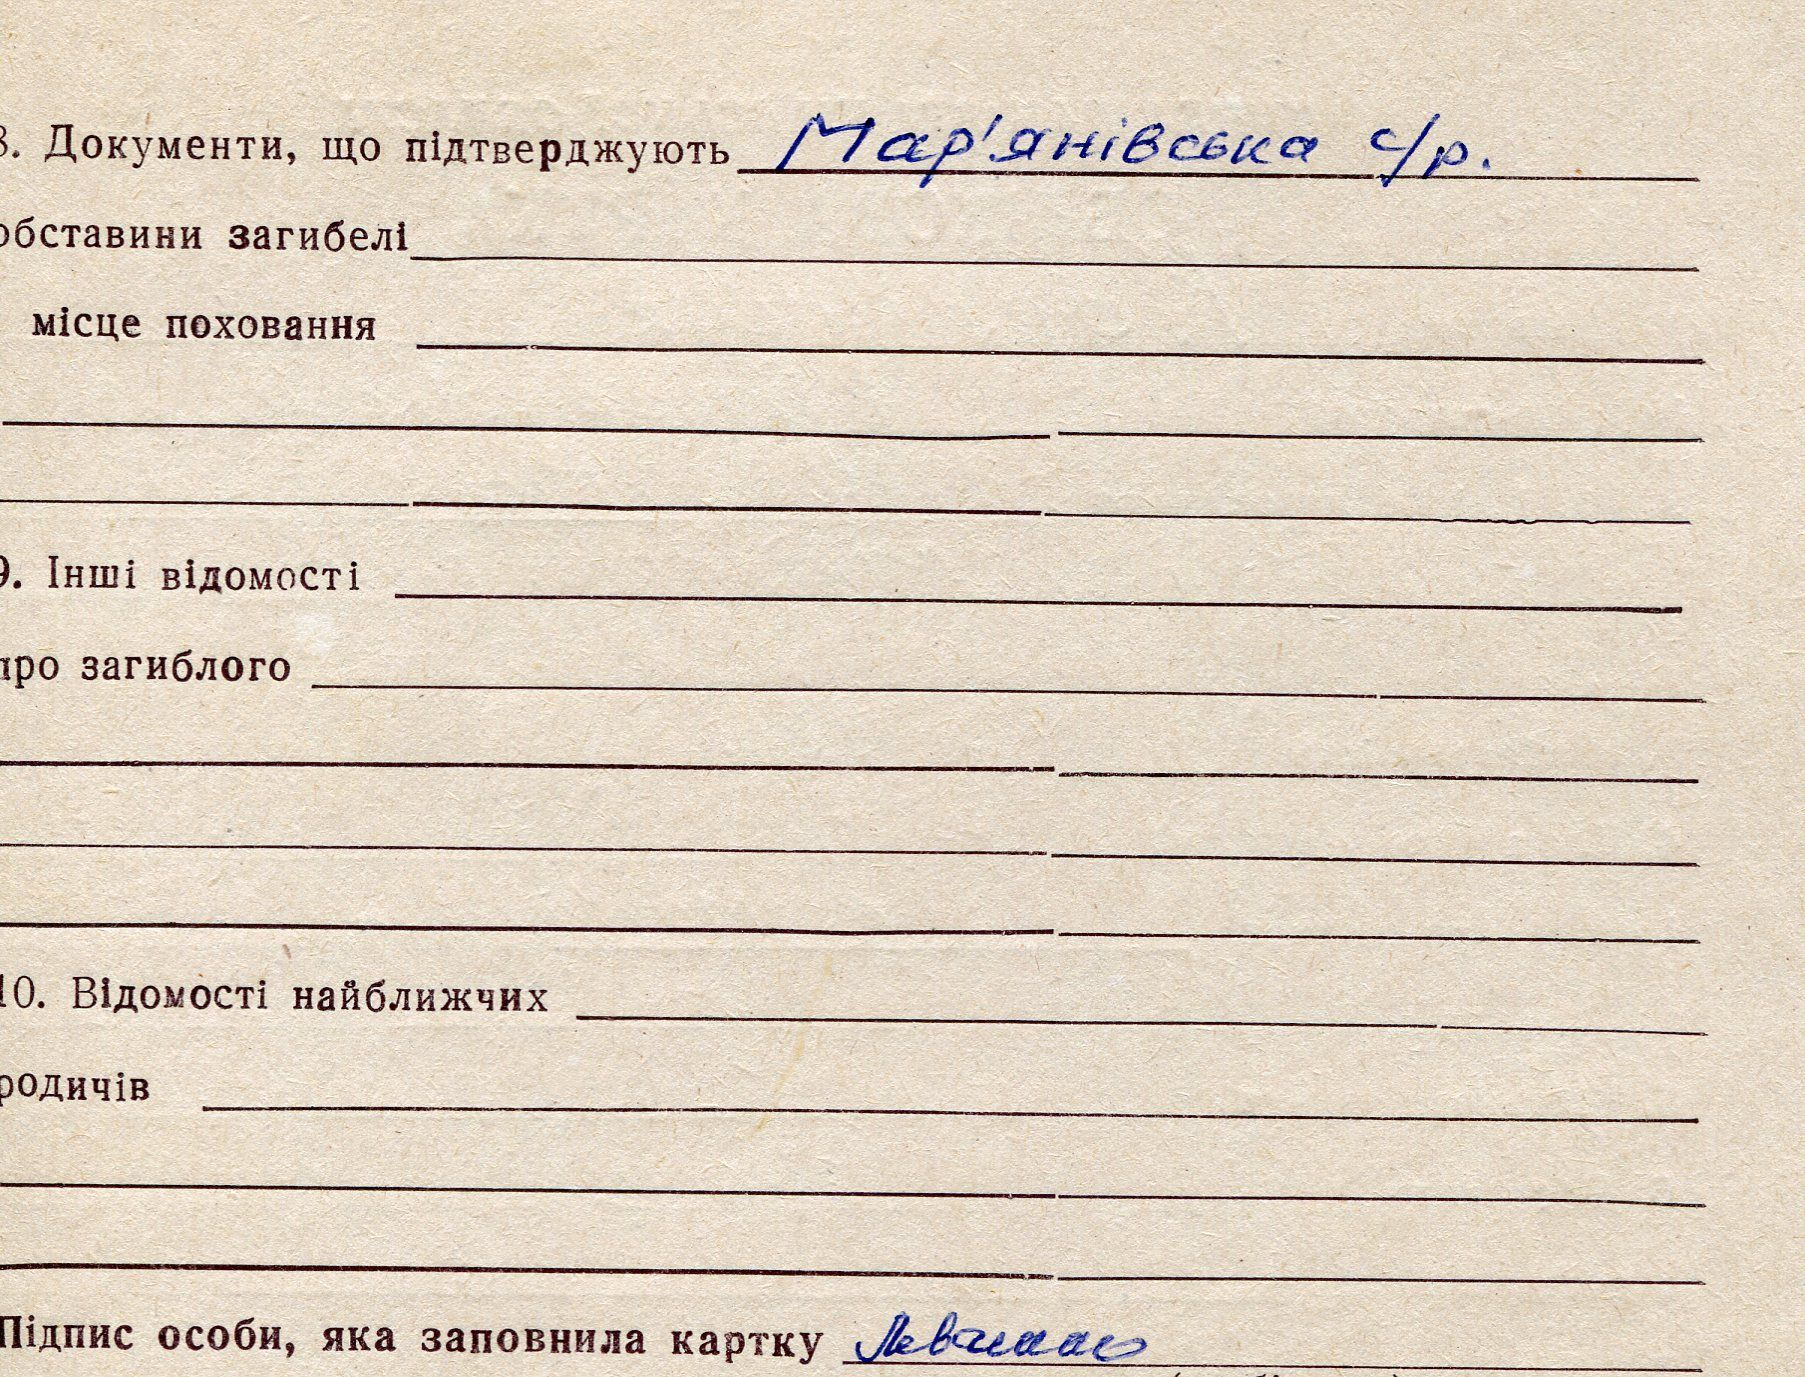 8. Документи, що підтверджують Мар'янівська с/р.
обставини загибелі
місце поховання
9. Інші відомості
про загиблого
10. Відомості найближчих
родичів
Підпис особи, яка заповнила картку